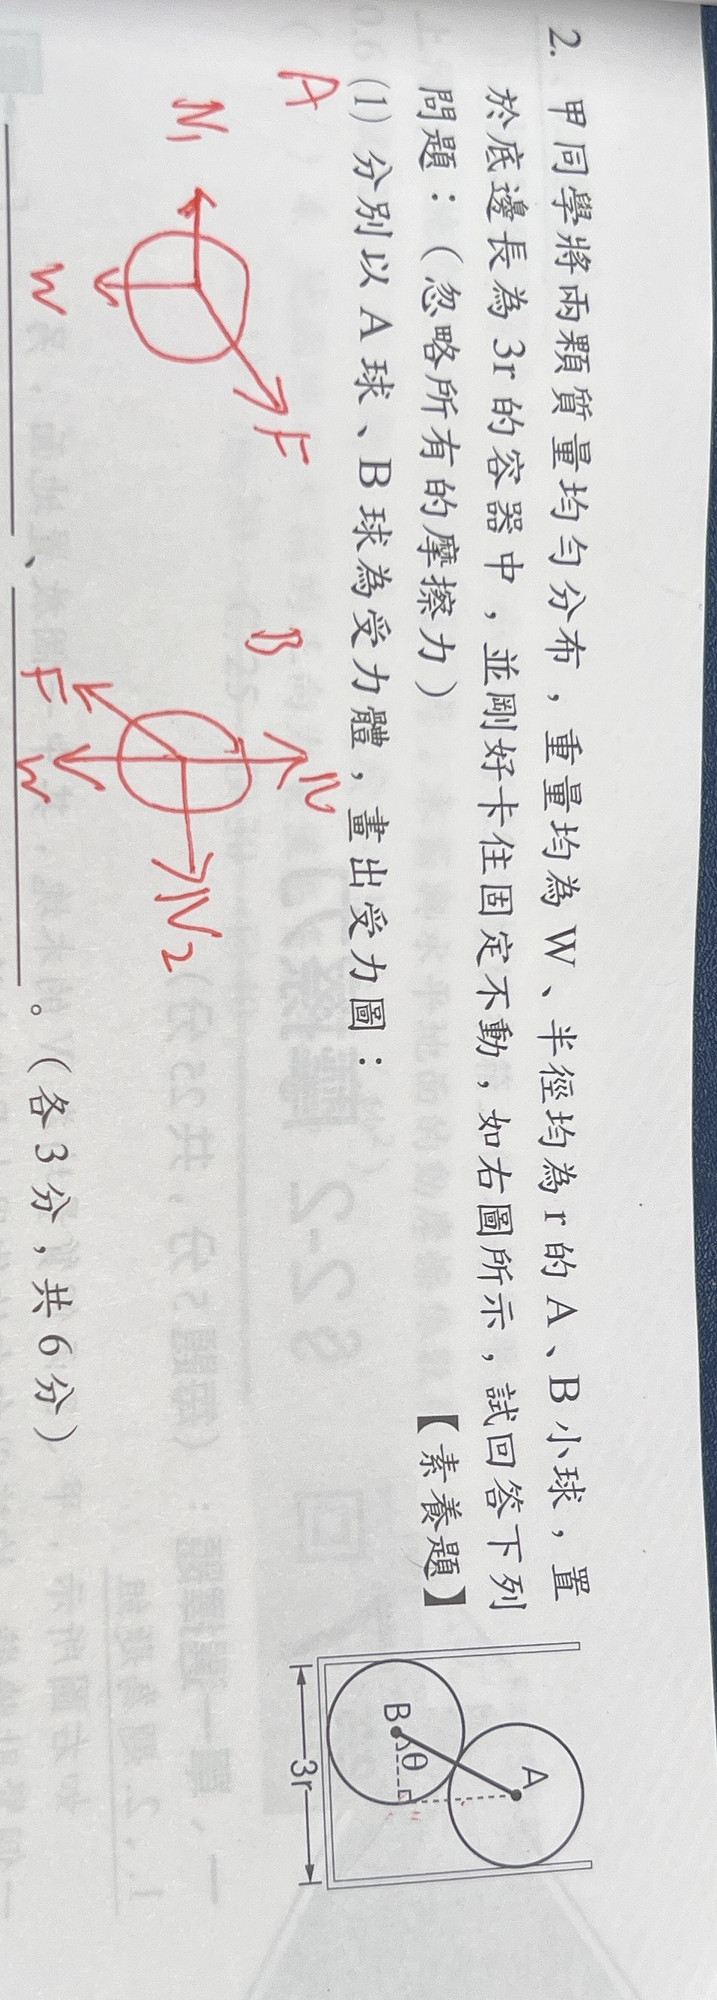 2. 甲同學將兩顆質量均勻分布，重量均為 W、半徑均為 r 的 A、B 小球，置
於底邊長為 3r 的容器中，並剛好卡住固定不動，如右圖所示，試回答下列
問題：（忽略所有的摩擦力）【素養題】
(1) 分別以 A 球、B 球為受力體，畫出受力圖：
A
N₁
F
W
B
N
N₂
F
W
、
。（各 3 分，共 6 分）
A
B
θ
3r